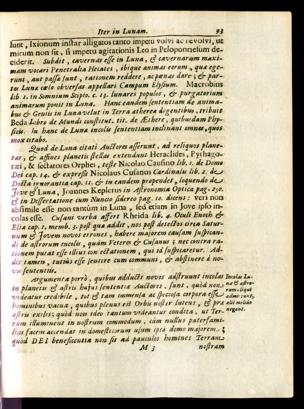 Iter in Lunam. 93
sunt, Ixionum instar alligatos tanto impetu volvi ac revolvi, ut
mirum non sit, si impetu agitationis Leo in Peloponnesum de-
ciderit. Subdit, cavernas esse in Luna, & cavernarum maxi-
mam vocari Penetralia Hecates, ibique animas eorum, quæ ege-
runt, aut passæ sunt, rationem reddere, ac pœnas dare; & par-
tes Lunæ cælo obversas appellari Campum Elysium. Macrobius
lib. 1. in Somnium Scipio. c. 13. lunares populos, & purgatorium
animarum ponit in Luna. Hanc eandem sententiam de anima-
bus & Geniis in Luna velut in Terra ætherea degentibus, tribuit
Beda Libro de Mundi constitut. tit. de Æthere, quibusdam Phy-
sicis. In hanc de Lunæ incolis sententiam inclinant omnes, quos
mox citabo.
Quod de Luna citati Auctores asserunt, ad reliquos plane-
tas, & affixas planetis stellas extendunt Heraclides, Pythago-
rici, & sectatores Orphei, teste Nicolao Causino lib. 1. de Domo
Dei cap. 14. & expressè Nicolaus Cusanus Cardinalis lib. 2. de
Docta ignorantia cap. 12. & in eandem propendet, loquendo de
Jove & Luna, Joannes Keplerus in Astronomia Optica pag. 250.
& in Dissertatione cum Nuncio sidereo pag. 10. dicens: veri non
absimile esse non tantum in Luna, sed etiam in Jove ipso in-
colas esse. Cusani verba affert Rheita lib. 4. Oculi Enoch &
Eliæ cap. 1. memb. 3. post quæ addit, nos post detectos circa Satur-
num & Jovem novos errones, habere majorem causam suspican-
di de astrorum incolis, quàm Petrem & Cusanus; nec contra ra-
tionem putat esse illius contectationem, qui id suspicaretur. Ad-
dit tamen, satius esse sentire cum communi, & abstinere à no-
vis sententiis.
Argumenta porrò, quibus adducti novos adstruunt incolas
in planetis & astris hujus sententiæ Auctores, sunt, quòd non
videatur credibile, tot & tam immensa ac speciosa corpora esse
hominibus vacua, quibus plenus est Orbis noster luteus, & præ
astris exilis; quòd non ideo tantùm videantur condita, ut Ter-
ram illuminent in nostrum commodum, cùm nullus paterfami-
lias facem accendat in domesticorum usum ipsa domo majorem;
quòd DEI beneficentia non sit ad pauculos homines Terram
M 3 nostram
Incolas Lu-
næ & astro-
rum, qui
admittant,